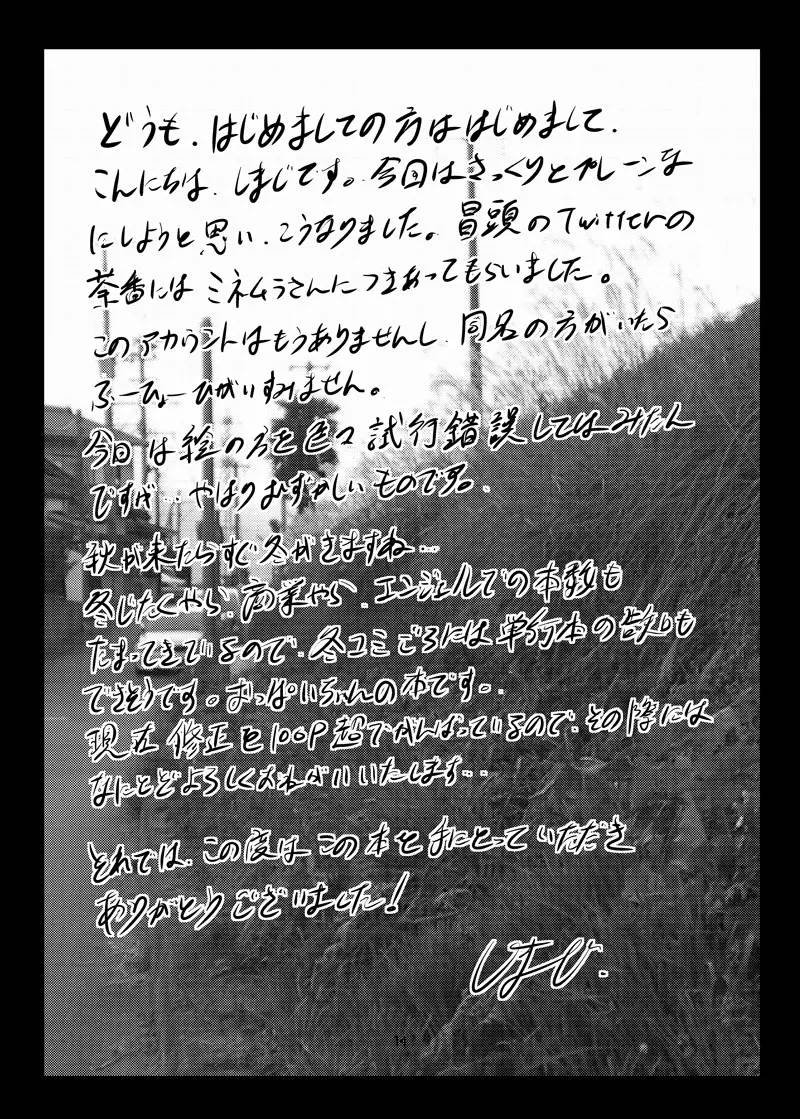 どうも、はじめましての方ははじめまして、
こんにちは、しまじです。今回はさっくりとプレーンな
にしようと思い、こうなりました。冒頭のTwitterの
茶番にはミネムラさんにつきあってもらいました。
このアカウントはもうありませんし、同名の方がいたら
ふーひょーひがいすみません。
今回は絵の方を色々試行錯誤してはみたん
ですが‥やはりむずかしいものです。
秋が来たらすぐ冬がきますね‥
冬じたくやら、商業やら、エンジェルでの本数も
たまってきているので、冬コミごろには単行本の話しも
できそうです。おっぱいちゃんの本です。
現在修正を100P超でがんばっているので、その際には
なにとどよろしくおねがいいたします‥
それでは、この度はこの本を手にとっていただき
ありがとうございました!
14